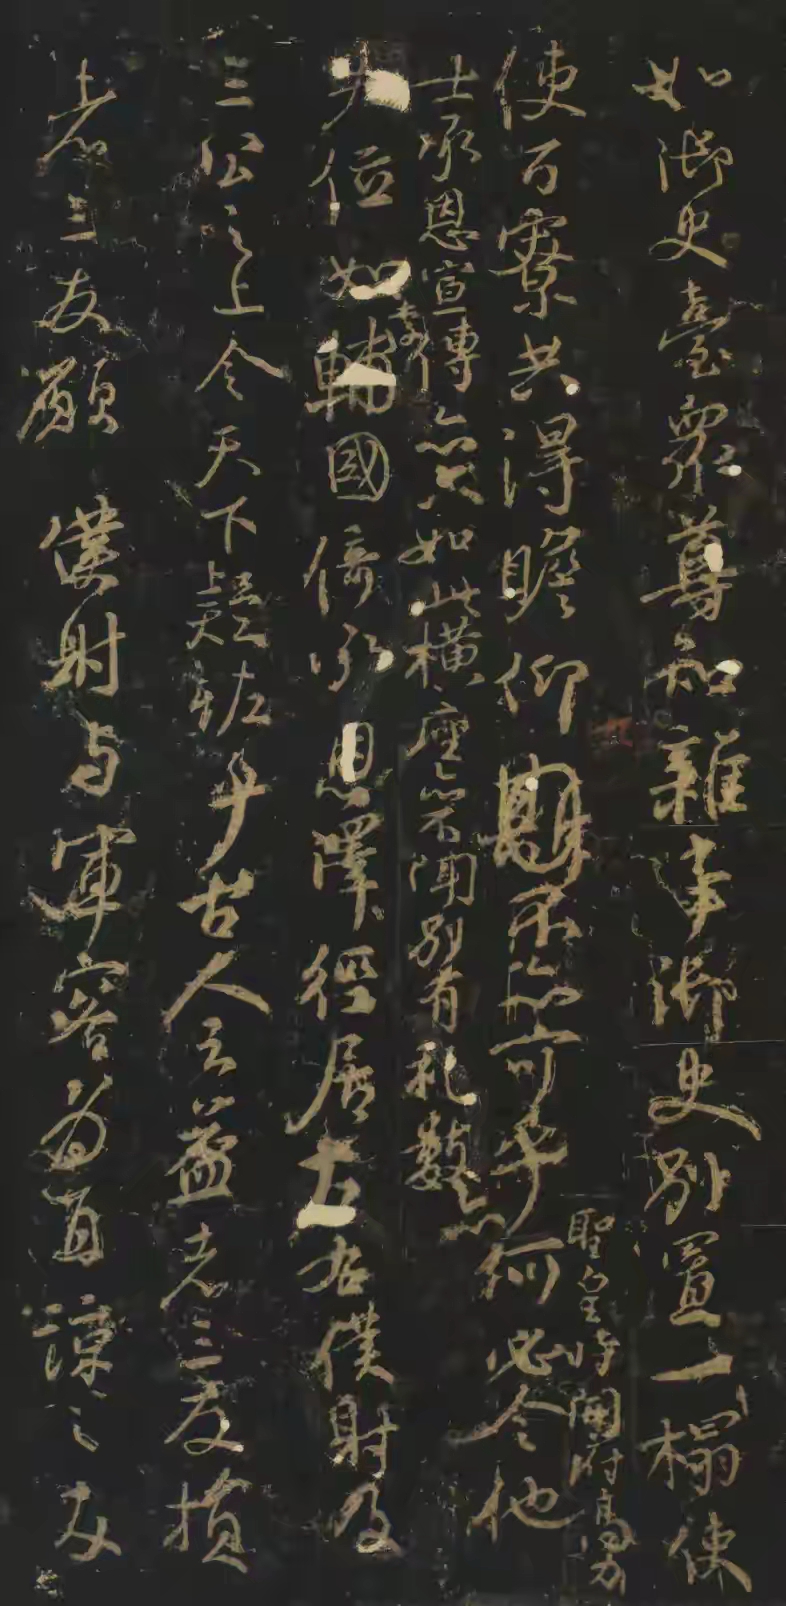 如御史臺眾尊知雜事御史別置一榻使
百寮共得瞻仰不亦可乎
聖皇時開府高力
士承恩宣傳亦只如此橫座亦不聞別有礼數亦
何必令他
失位如李輔國倚承恩澤徑居左右僕射及
三公之上令天下疑怪乎古人云益者三友損
者三友願僕射与軍容為直諒之友